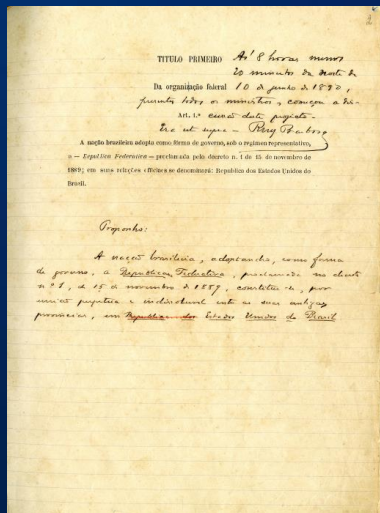 TITULO PRIMEIRO Ás 8 horas menos
20 minutos da noute de
Da organização federal 10 de junho de 1890,
presentes todos os ministros, começou a dis-
Art. 1.º cussão deste projecto.
Era ut supra – Ruy Barbosa
A nação brazileira adopta como fórma de governo, sob o regimen representativo,
a — Republica Federativa — proclamada pelo decreto n. 1 de 15 de novembro de
1889; em suas relações officiaes se denominará: Republica dos Estados Unidos do
Brazil.
Proponho:
A nação brasileira, adoptando, como forma
de governo, a Republica Federativa, proclamada no decreto
nº 1, de 15 de novembro de 1889, constitue-se, por
união perpetua e indissoluvel entre as suas antigas
provincias, em Republica dos Estados Unidos do Brasil